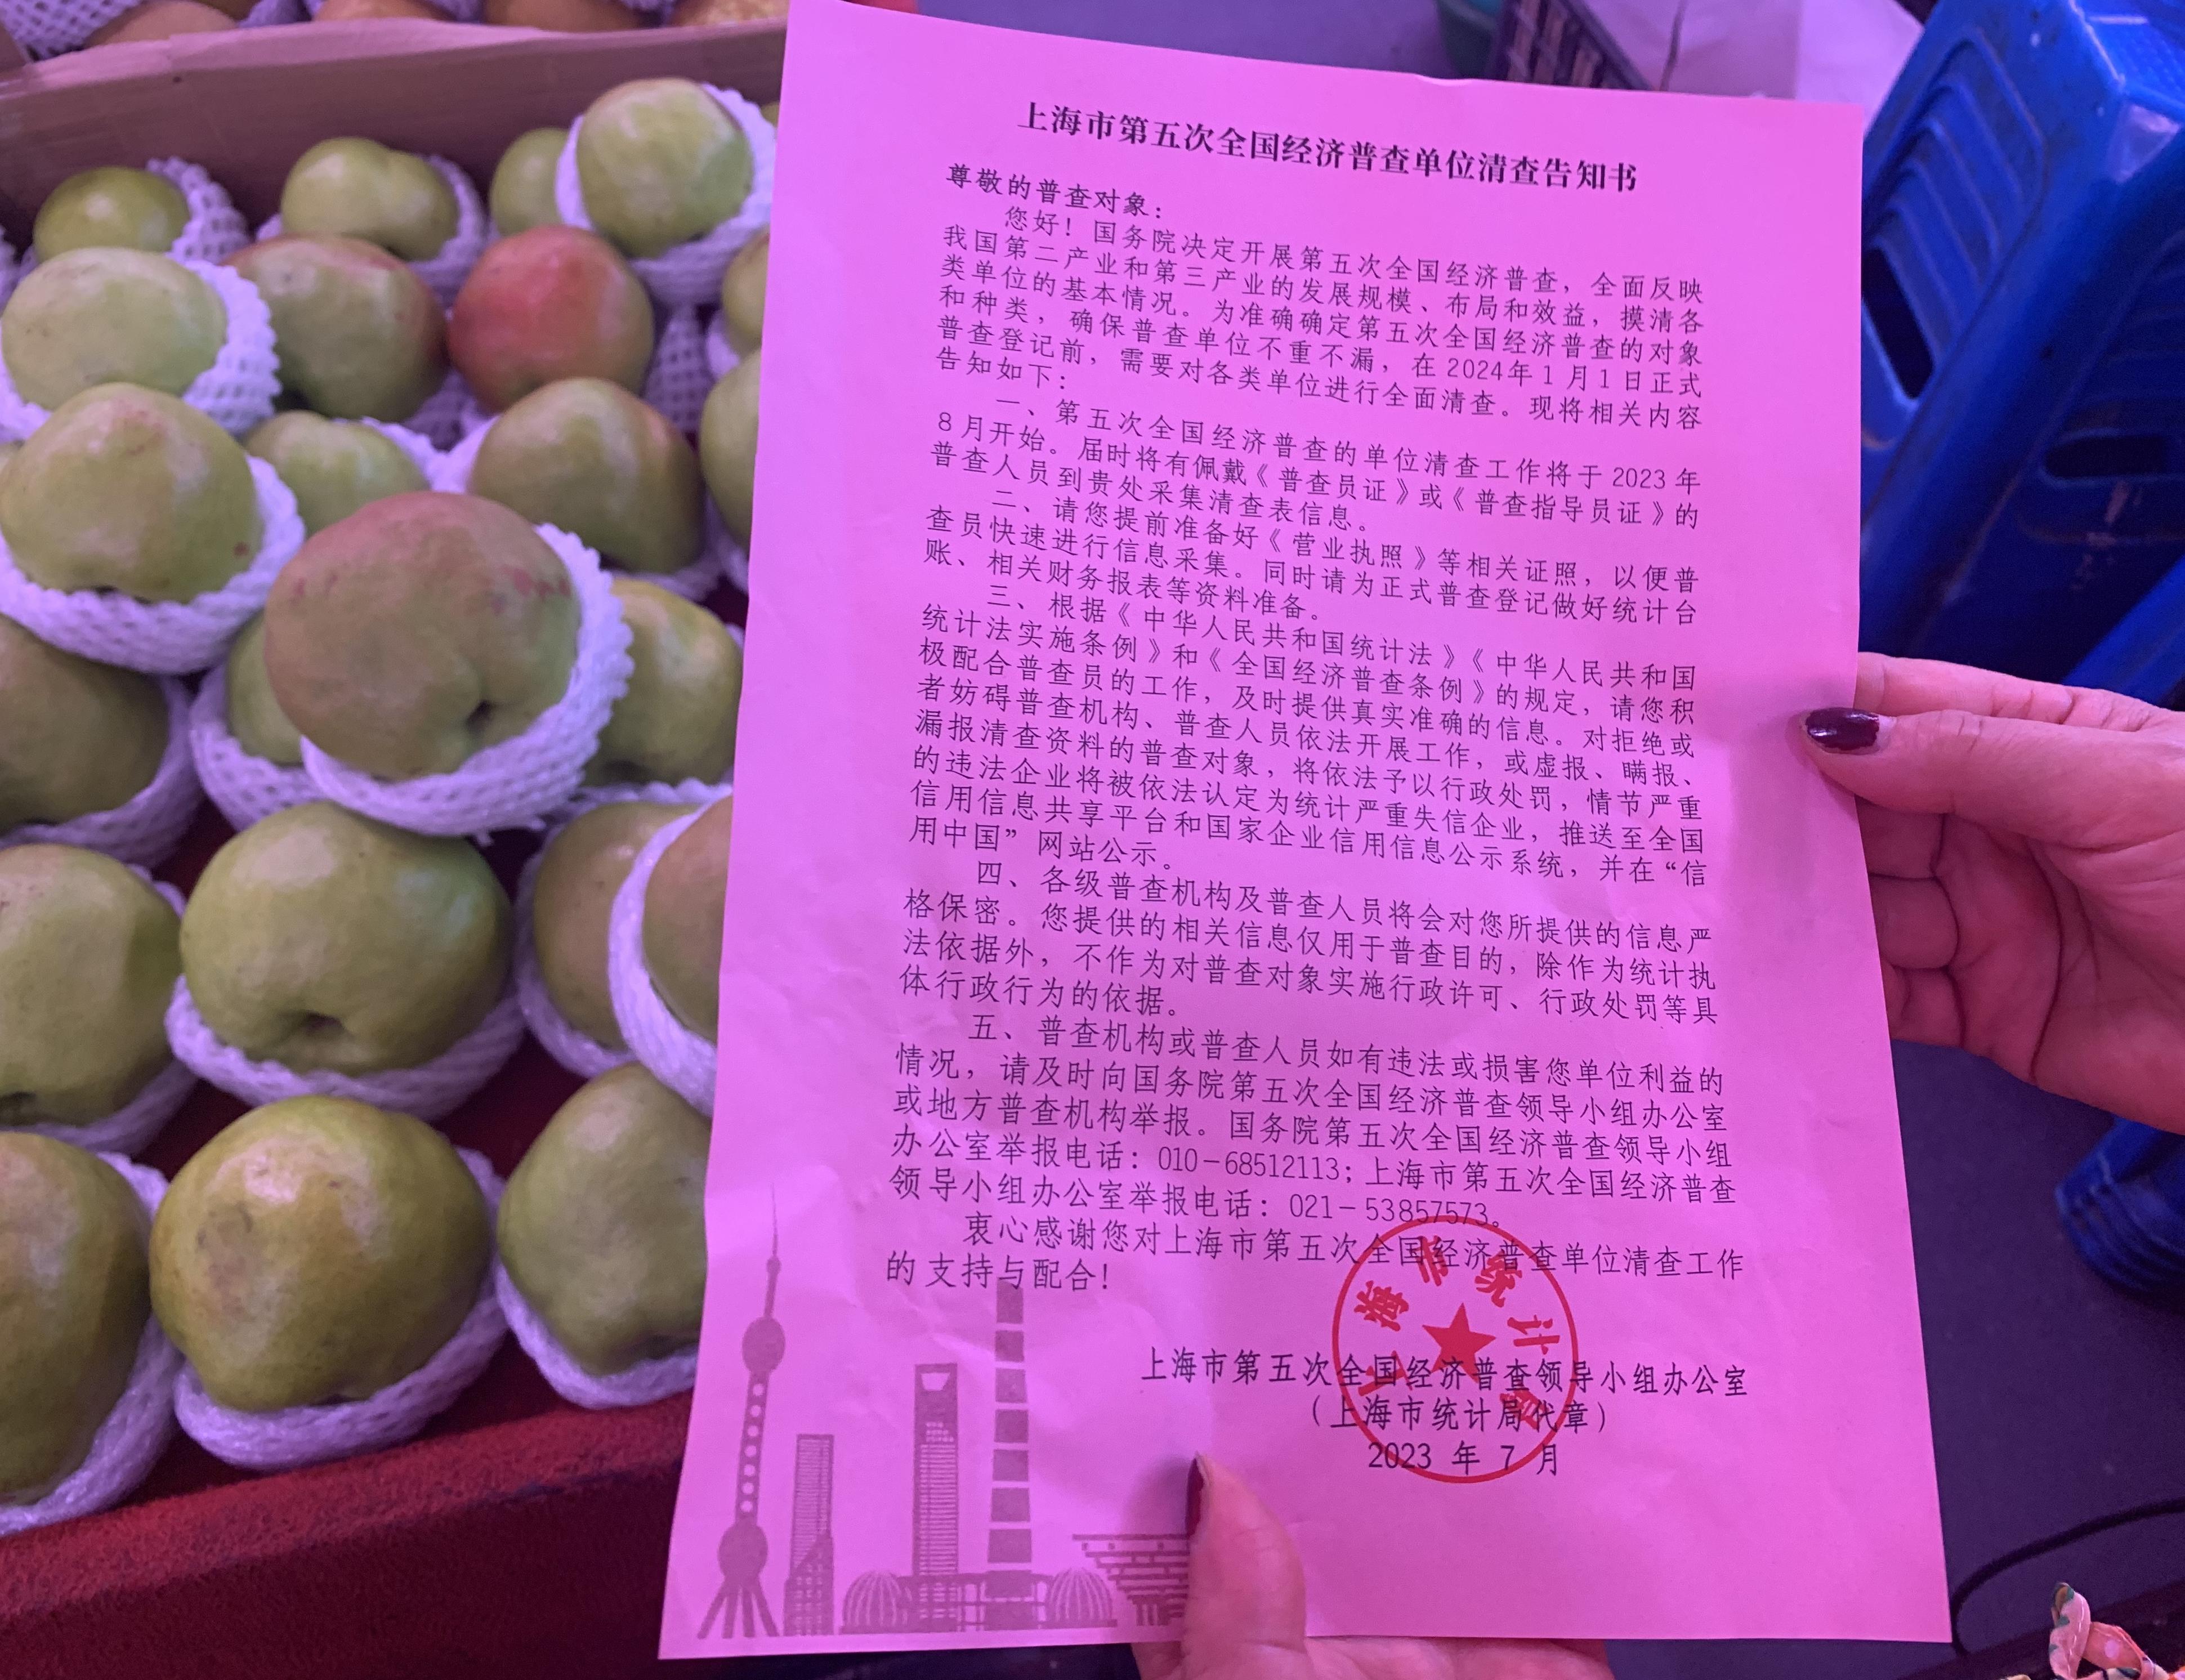 上海市第五次全国经济普查单位清查告知书
尊敬的普查对象：
您好！国务院决定开展第五次全国经济普查，全面反映
我国第二产业和第三产业的发展规模、布局和效益，摸清各
类单位的基本情况。为准确确定第五次全国经济普查的对象
和种类，确保普查单位不重不漏，在2024年1月1日正式
普查登记前，需要对各类单位进行全面清查。现将相关内容
告知如下：
一、第五次全国经济普查的单位清查工作将于2023年
8月开始。届时将有佩戴《普查员证》或《普查指导员证》的
普查人员到贵处采集清查表信息。
二、请您提前准备好《营业执照》等相关证照，以便普
查员快速进行信息采集。同时请为正式普查登记做好统计台
账、相关财务报表等资料准备。
三、根据《中华人民共和国统计法》《中华人民共和国
统计法实施条例》和《全国经济普查条例》的规定，请您积
极配合普查员的工作，及时提供真实准确的信息。对拒绝或
者妨碍普查机构、普查人员依法开展工作，或虚报、瞒报、
漏报清查资料的普查对象，将依法予以行政处罚，情节严重
的违法企业将被依法认定为统计严重失信企业，推送至全国
信用信息共享平台和国家企业信用信息公示系统，并在“信
用中国”网站公示。
四、各级普查机构及普查人员将会对您所提供的信息严
格保密。您提供的相关信息仅用于普查目的，除作为统计执
法依据外，不作为对普查对象实施行政许可、行政处罚等具
体行政行为的依据。
五、普查机构或普查人员如有违法或损害您单位利益的
情况，请及时向国务院第五次全国经济普查领导小组办公室
或地方普查机构举报。国务院第五次全国经济普查领导小组
办公室举报电话：010-68512113；上海市第五次全国经济普查
领导小组办公室举报电话：021-53857573。
衷心感谢您对上海市第五次全国经济普查单位清查工作
的支持与配合！
上海市第五次全国经济普查领导小组办公室
（上海市统计局代章）
2023 年 7 月
上海市统计局